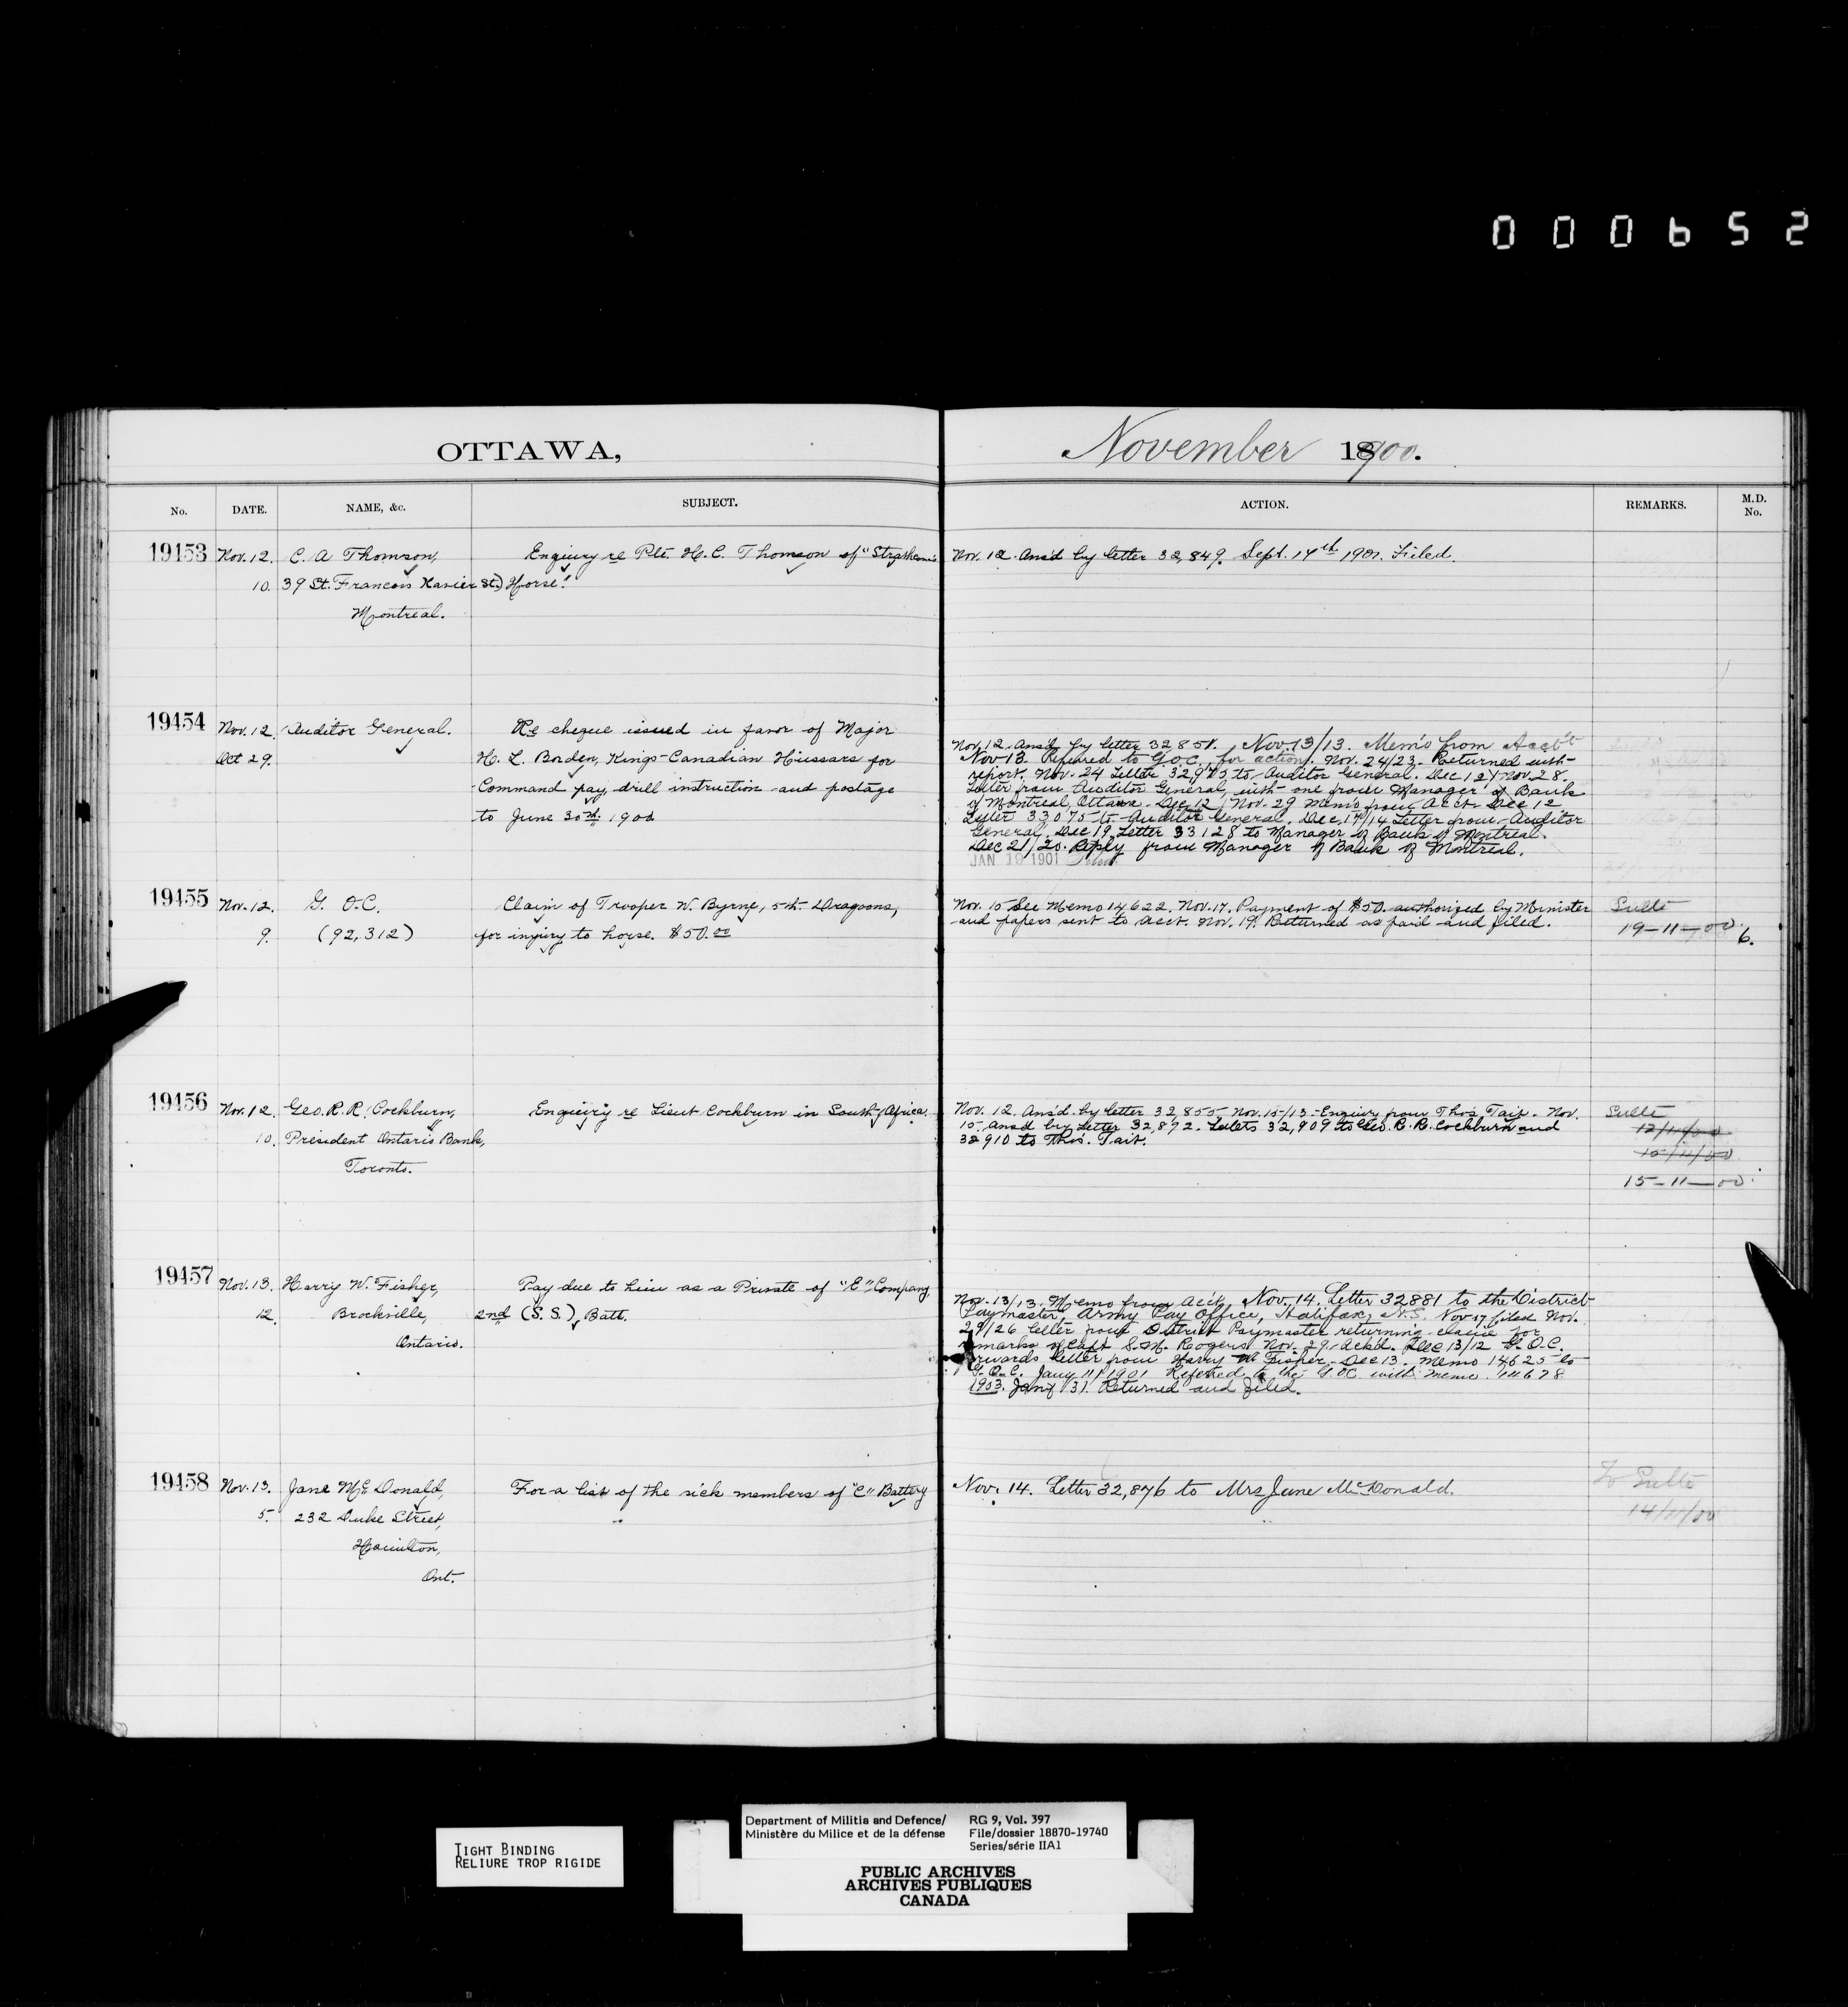 000652
OTTAWA,
November 1900.
No.
DATE.
NAME, &c.
SUBJECT.
ACTION.
REMARKS.
M.D.
No.
19453
Nov. 12.
10.
C. A Thomson,
39 St. Francois Xavier St.,
Montreal.
Enquiry re Pte. H. C. Thomson of "Strathcona's
Horse."
Nov. 12. Ans'd by letter 32,849. Sept. 14th 1901. Filed.
19454
Nov. 12.
Oct 29.
Auditor General.
Re cheque issued in favor of Major
H. L. Borden, Kings-Canadian Hussars for
Command pay, drill instruction and postage
to June 30th 1900
Nov. 12. Ans'd by letter 32851. Nov. 13/13. Memo from Acc't
Nov 13. Referred to G.O.C. for action. Nov. 24/23. Returned with
report. Nov. 24 Letter 32,975 to Auditor General. Dec 12/Nov. 28.
Letter from Auditor General, with one from Manager of Bank
of Montreal, Ottawa. Dec. 12/Nov. 29 Memo from Acct. Dec 12
Letter 33075 to Auditor General. Dec. 17/14 Letter from Auditor
General. Dec 19. Letter 33128 to Manager of Bank of Montreal.
Dec 21/20. Reply from Manager of Bank of Montreal.
JAN 19 1901 Filed.
19455
Nov. 12.
9.
G. O.C.
(92,312)
Claim of Trooper W. Byrne, 5th Dragoons,
for injury to horse. $50.00
Nov. 15 See Memo 14,622. Nov. 17. Payment of $50. authorized by Minister
and papers sent to Acct. Nov. 19. Returned as paid and filed.
Sulte
19-11-00
6.
19456
Nov. 12.
10.
Geo. R. R. Cockburn,
President Ontario Bank,
Toronto.
Enquiry re Lieut Cockburn in South Africa.
Nov. 12. Ans'd. by letter 32,855. Nov. 15/13. Enquiry from Thos Tait. Nov.
15. Ans'd by Letter 32,892. Letters 32,909 to Geo. R. R. Cockburn and
32910 to Thos. Tait.
Sulte
12/11/00
15/11/00
15-11-00.
19457
Nov. 13.
12.
Harry W. Fisher,
Brockville,
Ontario.
Pay due to him as a Private of "E" Company
2nd (S. S.) Batt.
Nov. 13/13. Memo from Acc't. Nov. 14. Letter 32881 to the District
Paymaster, Army Pay Office, Halifax, N.S. Nov 17 filed Nov.
29/26 letter from District Paymaster returning claim for
remarks of Capt S. M. Rogers. Nov. 29. Ackd. Dec 13/12 G. O. C.
forwards letter from Harry W Fisher. Dec 13. Memo 14,625 to
G. O. C. Jany 11/1901 Referred to the G.OC. with memo 14678
1903. Jany 31. Returned and filed.
19458
Nov. 13.
5.
Jane McDonald,
232 Duke Street,
Hamilton,
Ont.
For a list of the sick members of "C" Battery
Nov. 14. Letter 32,876 to Mrs Jane McDonald.
To Sulte
14/11/00
TIGHT BINDING
RELIURE TROP RIGIDE
Department of Militia and Defence/
Ministère du Milice et de la défense
RG 9, Vol. 397
File/dossier 18870-19740
Series/série IIA1
PUBLIC ARCHIVES
ARCHIVES PUBLIQUES
CANADA